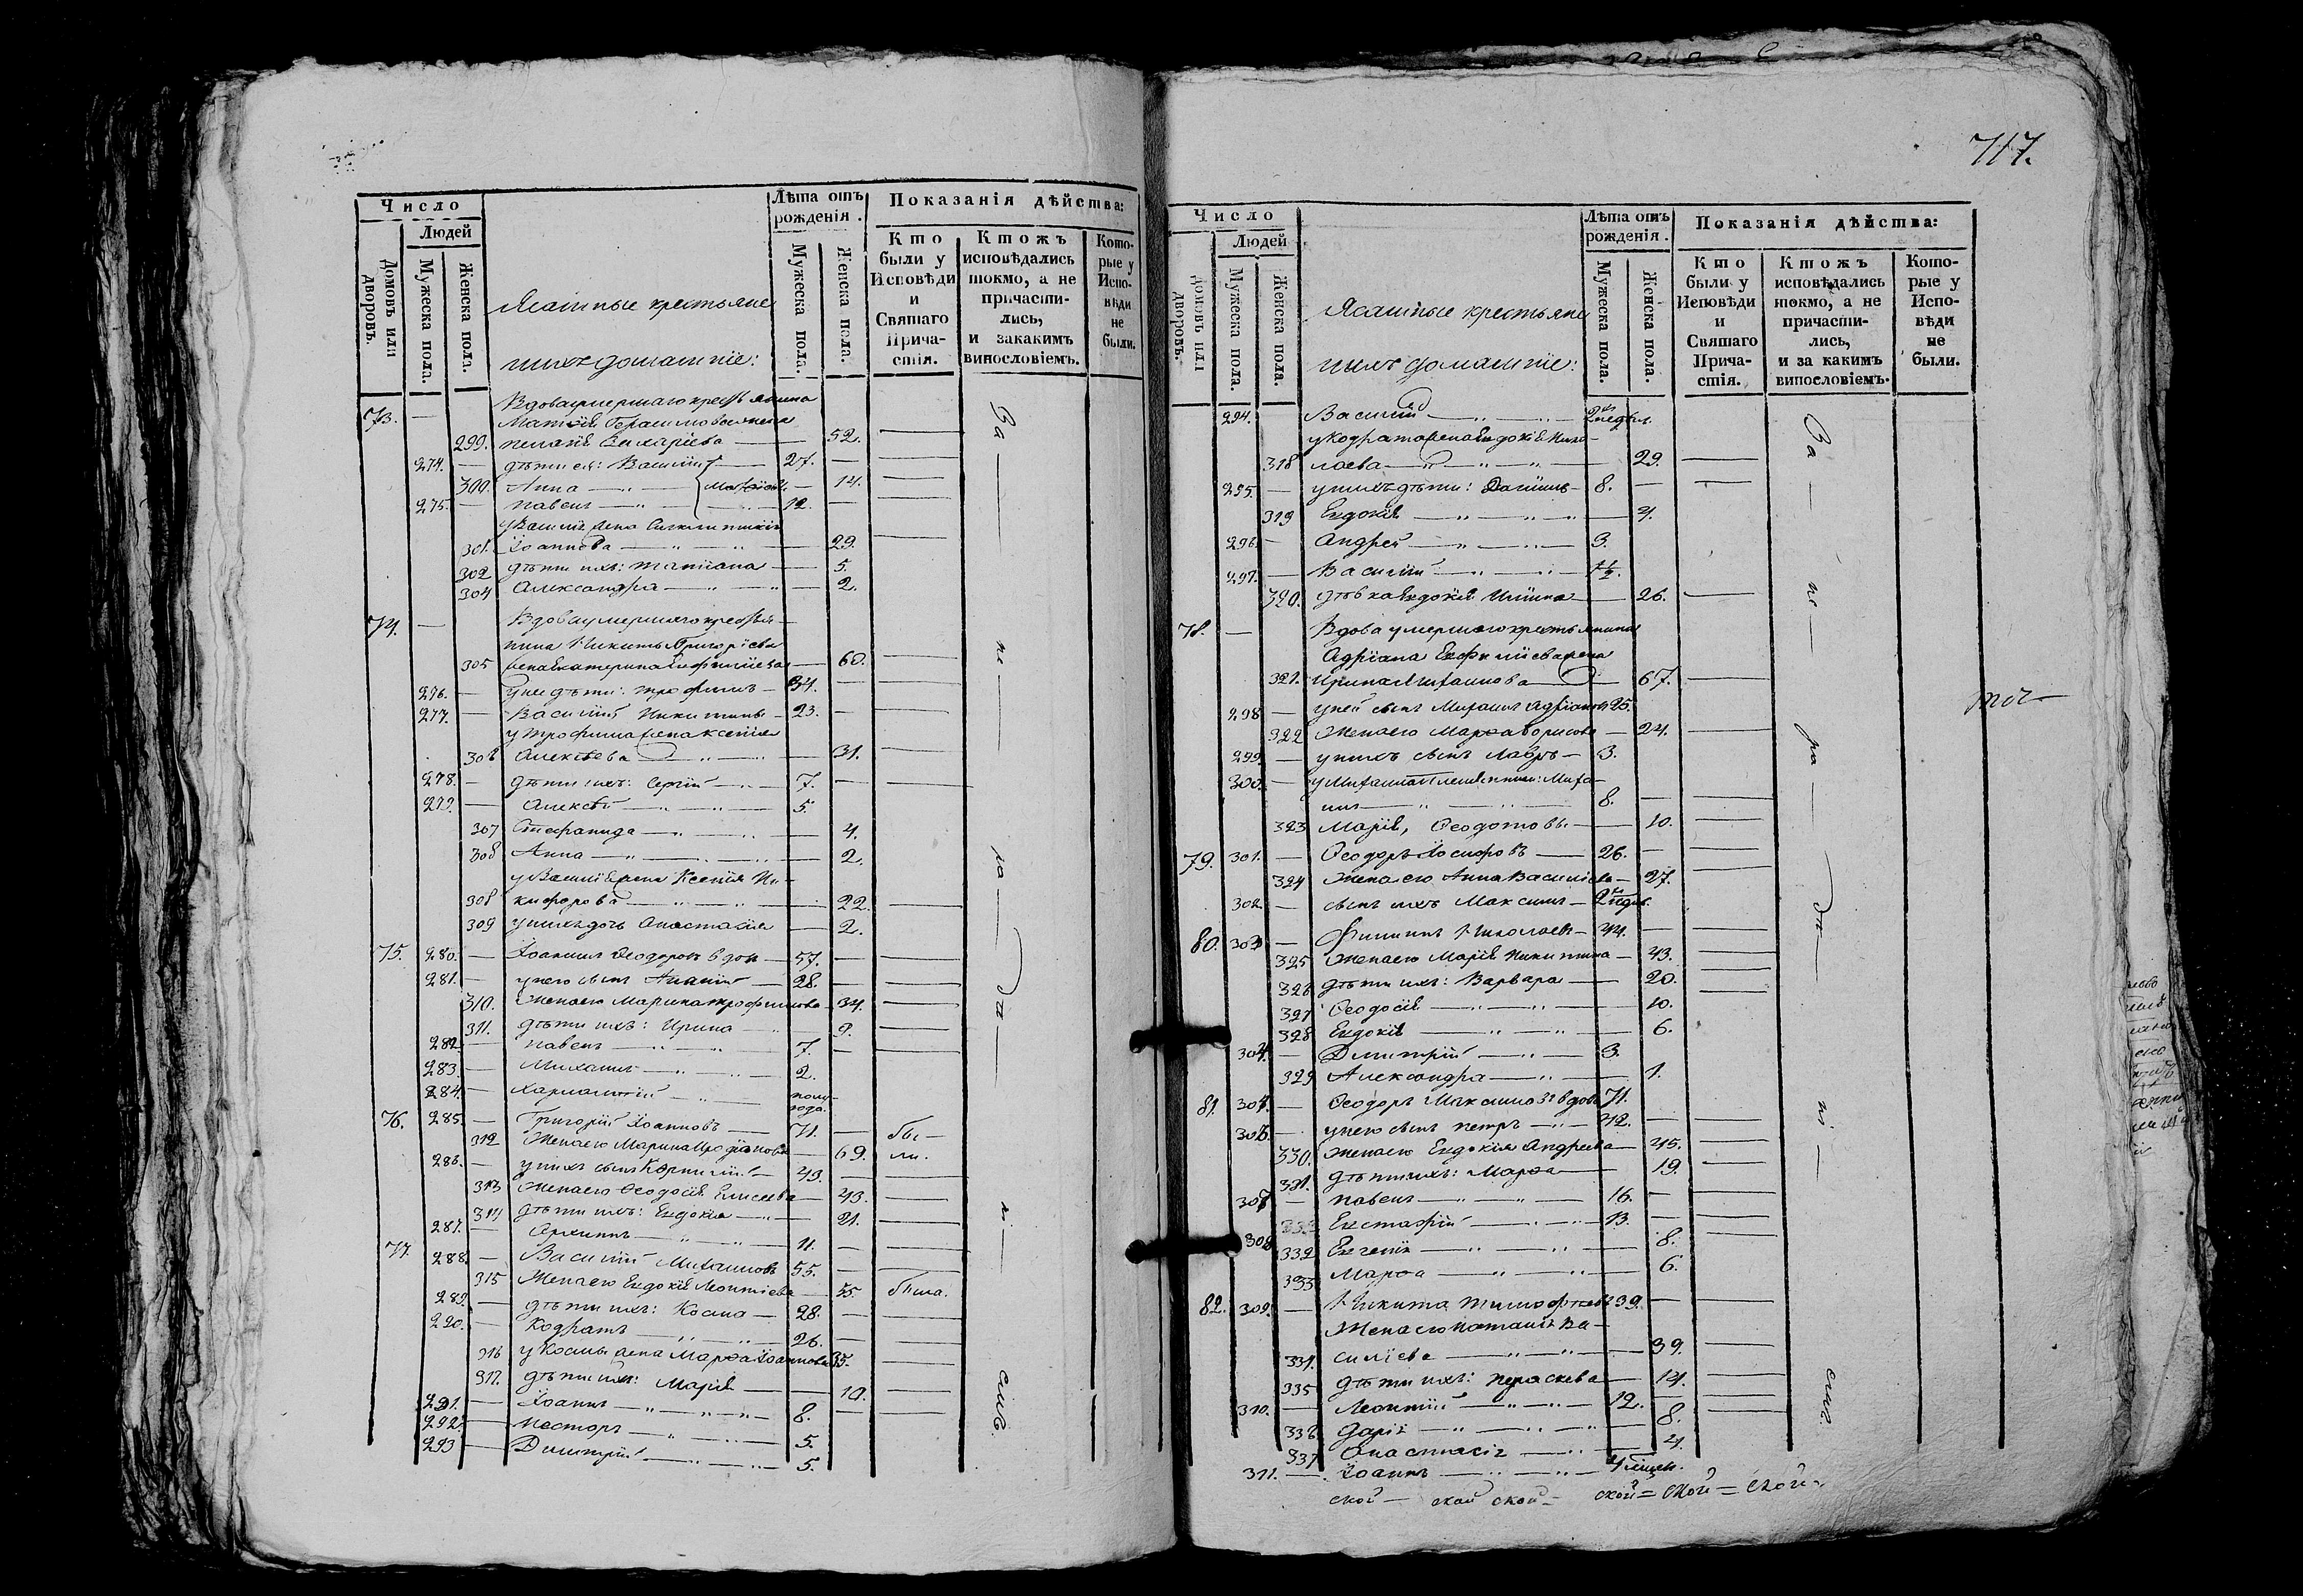 Число
Людей
Домовъ или дворовъ.
Мужеска пола.
Женска пола.
Ясашные крестьяне
ихъ домашніе:
Лѣта отъ рожденія.
Мужеска пола.
Женска пола.
Показанія дѣйства:
Кто были у Исповѣди и Святаго Прича-стія.
Ктожъ исповѣдались токмо, а не причасти-лись, и закакимъ винословіемъ.
Кото-рые у Испо-вѣди не были.
73. — Вдова умершаго крестьянина
299. 52.
274. — дѣти ея: Василій — 27. —
300. Анна — 14.
275. — Павелъ — 12.
у Василія жена
301. Іоаннова — 29.
302 дѣти ихъ: Татіана — 5.
304 Александра — 2.
74. — Вдова умершаго крестья-
нина Никиты Григоріева
305 жена Екатерина — 60.
276. — у неи дѣти: Трофимъ — 34.
277. — Василій Никитины — 23.
у Трофима жена Ксенія
306 Алексѣева — 31.
278. — дѣти ихъ: Сергій — 7.
279. — Алексѣй — 5.
307 Стефанида — 4.
308 Анна — 2.
у Василія жена Ксенія Ни-
308 кифорова — 22.
309 у нихъ дочь Анастасія — 2.
75. 280. — Іоаннъ Ѳеодоровъ вдов — 57. —
281. — у него сынъ Ананій — 28.
310. Жена его Марина Трофимова — 34.
311. дѣти ихъ: Ирина — 9.
282. — Павелъ — 7.
283. — Михаилъ — 2.
284. — Харлампій — полу-года.
76. 285. — Григорій Іоанновъ — 71. — бы-
312 Жена его Марина — 69. ли.
286. — у нихъ сынъ Корнилій — 43.
313 Жена его Ѳеодосія Елисеева — 43.
314 дѣти ихъ: Евдокія — 21.
287. — Архипъ — 11.
77. 288. — Василій Михаиловъ 55. —
315 Жена его Евдокія Леонтіева — 55. была.
289. — дѣти ихъ: Косма — 28.
290. — Кодратъ — 26.
316 у Космы жена Марѳа Іоаннова 35.
317. дѣти ихъ: Марія — 10.
291. — Іоаннъ — 8.
292. — Несторъ — 5.
293 — Димитрій — 5.
За — не — ра — дѣ — ні — емъ.
717.
Число
Людей
Домовъ или дворовъ.
Мужеска пола.
Женска пола.
Ясашные крестьяне
ихъ домашніе:
Лѣта отъ рожденія.
Мужеска пола.
Женска пола.
Показанія дѣйства:
Кто были у Исповѣди и Святаго Прича-стія.
Ктожъ исповѣдались токмо, а не причасти-лись, и за какимъ винословіемъ.
Кото-рые у Испо-вѣди не были.
294. Василій — 2 недѣл.
у Кодрата жена Евдокія Нико-
318 лаева — 29.
295. — у нихъ дѣти: Даніилъ — 8. —
319 Евдокія — 4.
296. — Андрей — 3.
297. — Василій — 1/2.
320. дѣвка Евдокія Ильина — 26.
78. — Вдова умершаго крестьянина
Адріана жена
321. Ирина Михаилова — 67.
298 — у неи сынъ Михаилъ Адріановъ 25.
322 Жена его Марѳа Борисова — 24.
299. — у нихъ сынъ Лавръ — 3.
300. — у Михаила племянники: Миха-
илъ — 8.
323 Марія, Ѳеодотовы — 10.
79. 301. — Ѳеодоръ Іосифовъ — 26. —
324 Жена его Анна Василіева — 27.
302. — сынъ ихъ Максимъ — 2 недѣл.
80. 303 — Филиппъ Николаевъ — 44. —
325 Жена его Марія Никитина — 43.
326 дѣти ихъ: Варвара — 20.
327 Ѳеодосія — 10.
328 Евдокія — 6.
304. — Димитрій — 3.
329 Александра — 1.
81. 305. — Ѳеодоръ Максимовъ вдовъ 71.
306. — у него сынъ Петръ — 42.
330. Жена его Евдокія Андреева — 45.
331. дѣти ихъ: Марѳа — 19.
307 — Павелъ — 16.
308 Евстафій — 13.
332 Евгенія — 8.
333 Марѳа — 6.
82. 309. — Никита Тимофеевъ 39. —
Жена его Наталія Ва-
334. силіева — 39.
335 дѣти ихъ: Параскева — 14.
310. — Леонтій — 12.
336. Дарія — 8.
337 Анастасія — 4.
311. — Іоаннъ —
За — не — ра — дѣ — ні — емъ.
ской — ской ской — ской = ской = ской